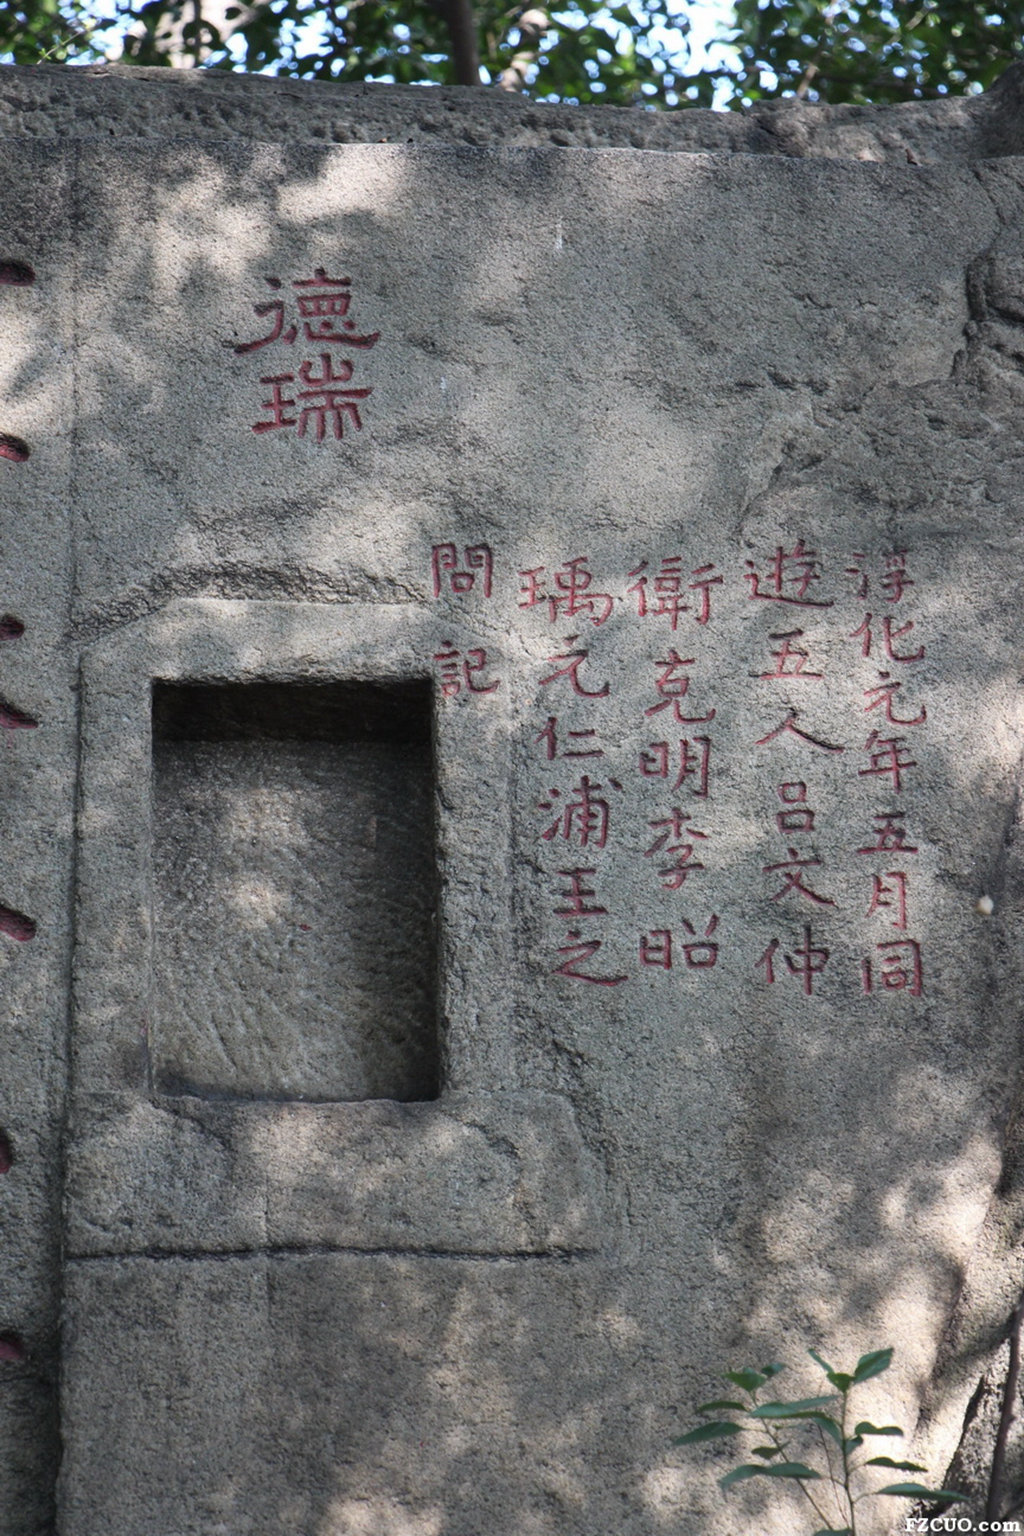 淳化元年五月同
遊五人吕文仲
衛克明李昭
瑀元仁浦王之
問記
德瑞
FZCUO.com